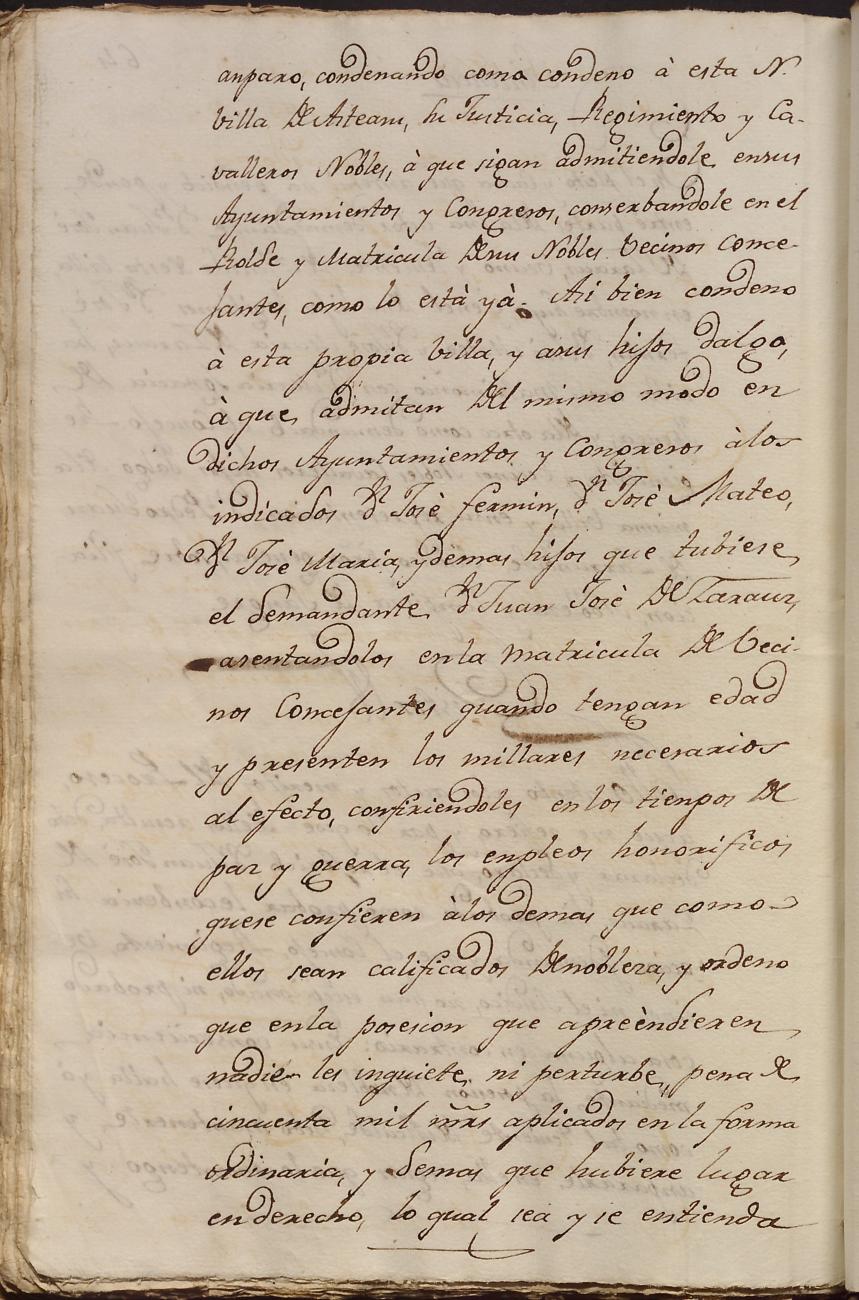 anparo, condenando como condeno à esta N.
Villa De Asteasu, su Justicia, Regimiento y Ca-
valleros Nobles, à que sigan admitiendole ensus
Ayuntamientos y Congresos, conserbandole en el
Rolde y Matricula Desus Nobles Vecinos Conce-
jantes, como lo està yà. Asi bien condeno
à esta propia Villa, y asus hijos dalgo,
à que admitan Del mismo modo en
dichos Ayuntamientos y Congresos àlos
indicados Dn Josè fermin, Dn Josè Mateo,
Dn Josè Maria, ydemas hijos que tubiese
el demandante Dn Juan Josè De Zarauz,
asentandolos enla Matricula De Veci-
nos Concejantes quando tengan edad
y presenten los millares necesarios
al efecto, confiriendoles en los tienpos De
paz y guerra, los enpleos honorificos
quese confieren àlos demas que como
ellos sean calificados Denobleza, y ordeno
que enla posesion que apreèndieren
nadie les inquiete, ni perturbe, pena De
cincuenta mil mrs aplicados en la forma
ordinaria, y demas que hubiere lugar
en derecho, lo qual sea y se entienda